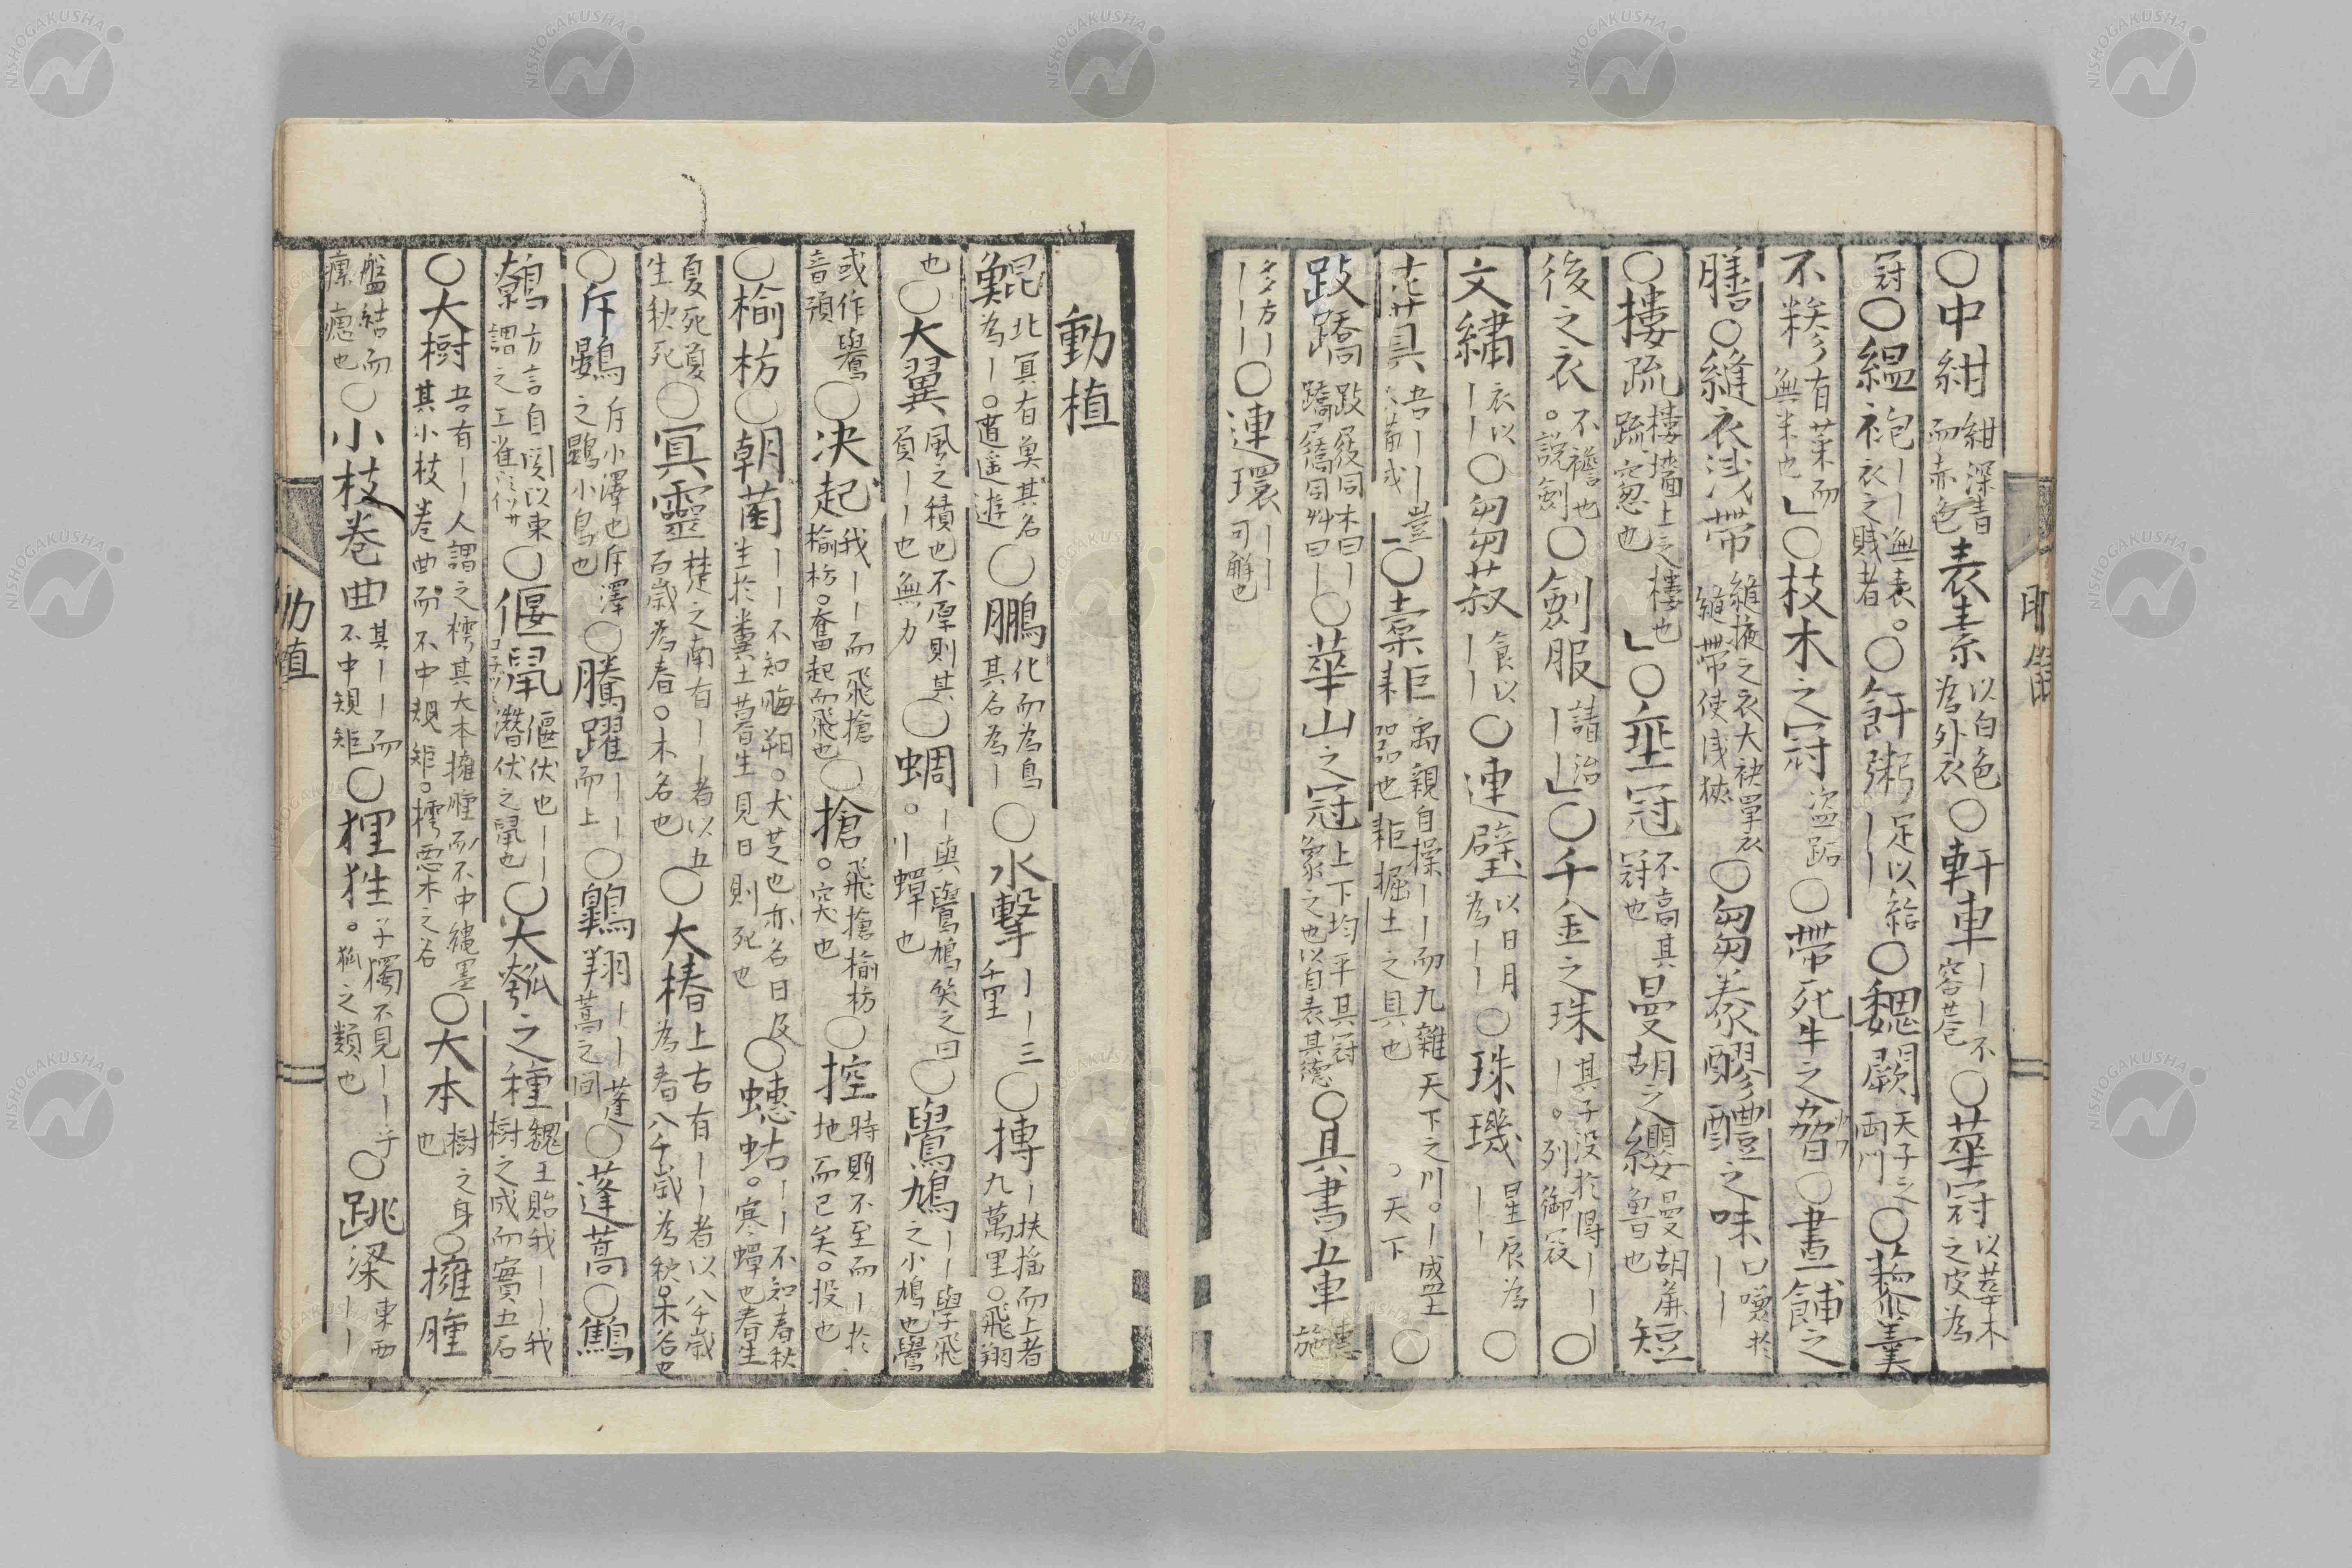 ○中紺紺深青而赤色表素以白色為外衣○軒車丨丨不容巷○華冠以華木之皮為
冠○縕袍丨丨無表。衣之賤者○飦粥足以給丨丨○魏闕天子之両門○藜羹
不糝有菜而無米也」○枝木之冠盗跖○帶死牛之脅○晝餔之
膳○縫衣浅帶縫掖之衣大袂單衣縫帶使浅狹○芻豢醪醴之味口嗛於丨丨
○樓疏樓墻上之樓也疏窓也」○垂冠不高其冠也曼胡之纓曼胡麁魯也短
後之衣不襜也。説劍○劍服請治丨丨」○千金之珠其子没於得丨丨丨。列御寇○
文繡衣以丨丨○芻菽食以丨丨○連壁以日月為丨丨○珠璣星辰為丨丨○
丨○橐耟禹親自操丨丨而九雜天下之川。丨盛土器也耟掘土之具也。天下○
跂蹻跂屐同木曰丨蹻屩同艸曰丨○華山之冠上下均平其冠象之也以自表其德○具書五車惠施
多方丨丨丨丨○連環丨丨可解也
動植
鯤北冥有魚其名為丨。逍遥遊○鵬化而為鳥其名為丨○水擊丨丨三千里○搏丨扶摇而上者九萬里。飛翔
也○大翼風之積也不厚則其負丨丨也無力○蜩丨與鷽鳩笑之曰。丨蟬也○鷽鳩丨丨學飛之小鳩也鷽
或作鷽音預○決起我丨丨而飛搶榆枋。奮起而飛也○搶飛搶榆枋。突也○控時則不至而丨於地而已矣。投也
○榆枋○朝菌丨丨不知晦朔。犬芝也亦名日及生於糞土暮生見日則死也○蟪蛄丨丨不知春秋。寒蟬也春生
夏死夏生秋死○冥靈楚之南有丨丨者以五百歳為春。木名也○大椿上古有丨丨者以八千歳為春八千歳為秋。木名也
○斥鷃斥小澤也斥澤之鷃小鳥也○騰躍丨丨而上○翺翔丨丨蓬蒿之間○蓬蒿○鷦
鷯方言自関以東謂之工雀○偃鼠偃伏也丨丨潛伏之鼠也○大瓠之種魏王貽我丨丨我樹之成而實五石
○大樹吾有丨丨人謂之樗其大本擁腫而不中繩墨其小枝巻曲而不中規矩。樗悪木之名○大本樹之身也○擁腫
盤結而瘰癧也○小枝巻曲其丨丨而不中規矩○狸狌子獨不見丨丨乎。狐之類也○跳梁東西丨丨
動植